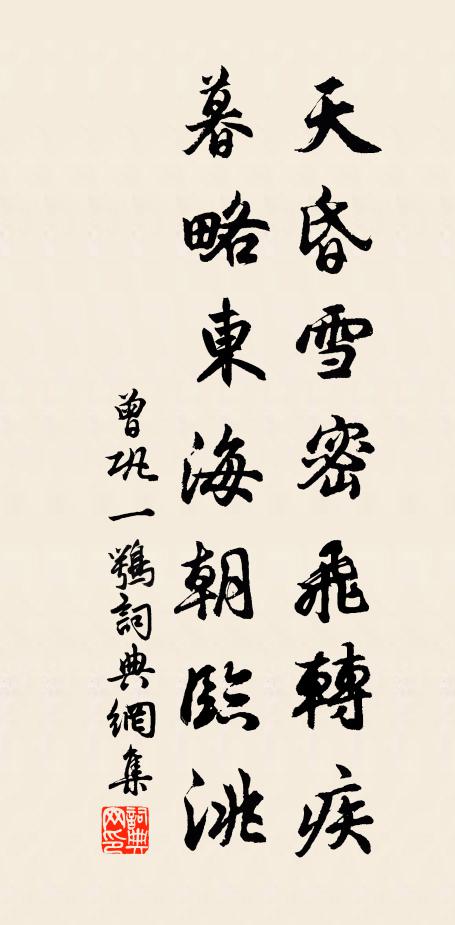 天昏雪密飛轉疾
暮略東海朝臨洮
曾巩一鶚詞典網集
詞典网印